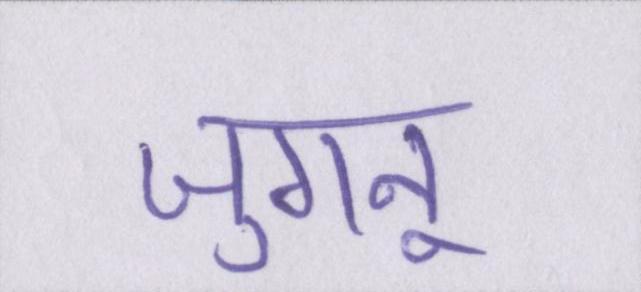 जुगनू